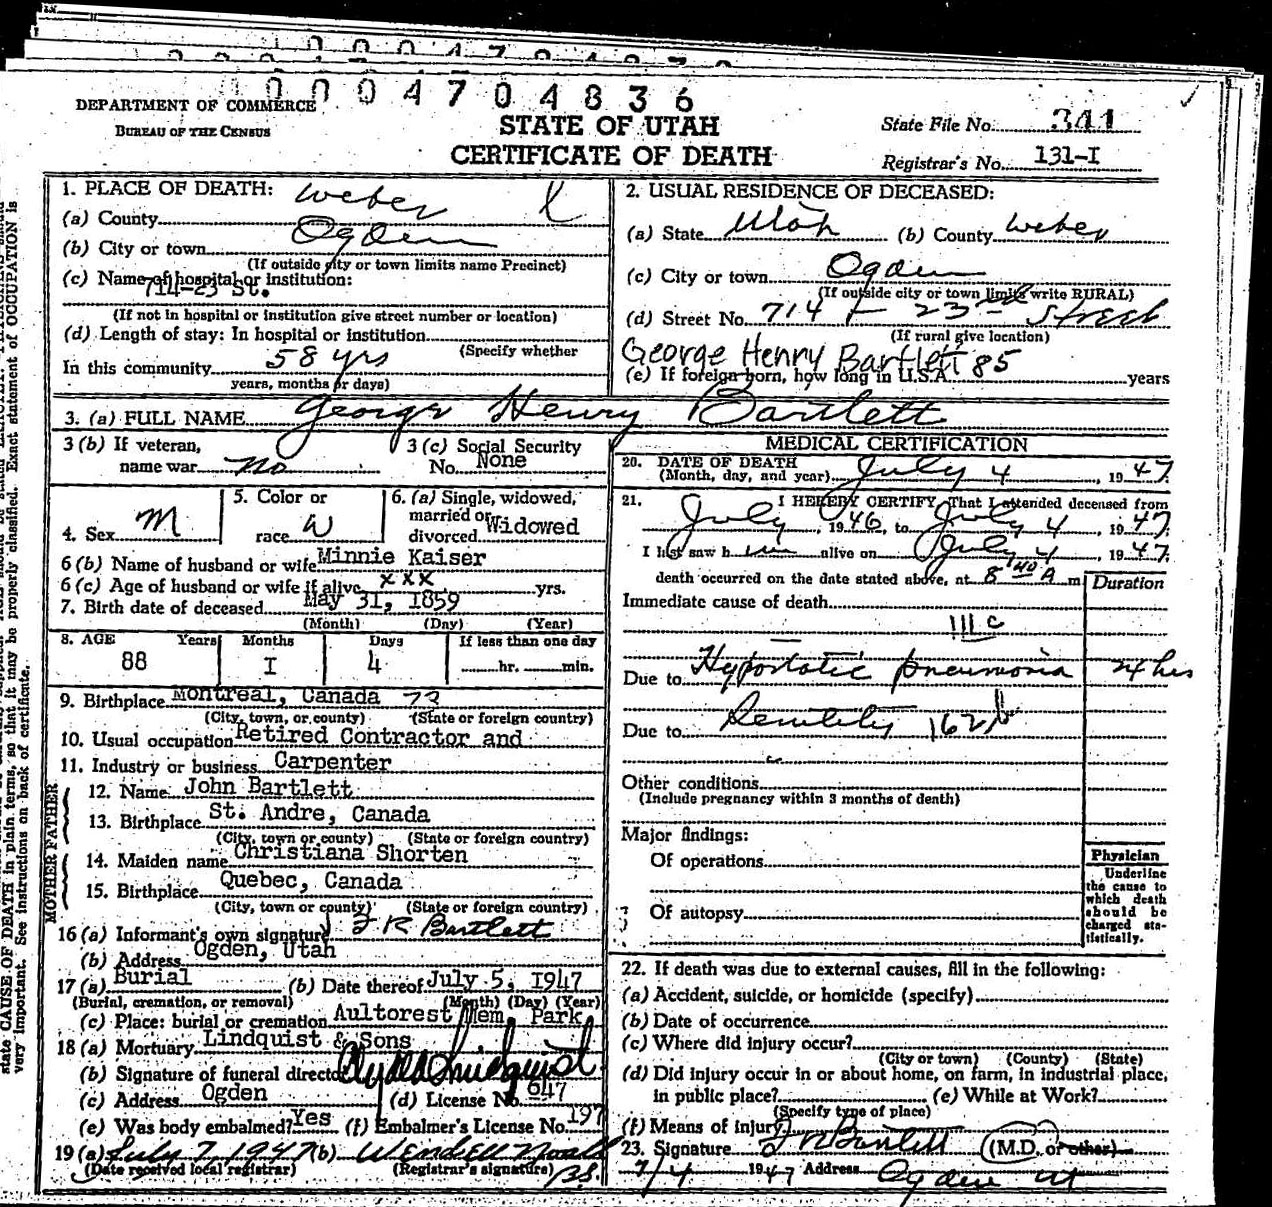 0004704836
DEPARTMENT OF COMMERCE
BUREAU OF THE CENSUS
STATE OF UTAH
CERTIFICATE OF DEATH
State File No. 344
Registrar's No. 131-I
1. PLACE OF DEATH:
(a) County Weber
(b) City or town Ogden
(If outside city or town limits name Precinct)
(c) Name of hospital or institution:
714-23 St.
(If not in hospital or institution give street number or location)
(d) Length of stay: In hospital or institution
(Specify whether
In this community 58 yrs
years, months or days)
2. USUAL RESIDENCE OF DECEASED:
(a) State Utah (b) County Weber
(c) City or town Ogden
(If outside city or town limits write RURAL)
(d) Street No. 714 - 23rd Street
(If rural give location)
George Henry Bartlett 85
(e) If foreign born, how long in U.S.A. years
3. (a) FULL NAME George Henry Bartlett
3 (b) If veteran,
name war no
3 (c) Social Security
No. None
4. Sex M
5. Color or
race W
6. (a) Single, widowed,
married or
divorced Widowed
6 (b) Name of husband or wife Minnie Kaiser
6 (c) Age of husband or wife if alive xxx yrs.
7. Birth date of deceased May 31, 1859
(Month) (Day) (Year)
8. AGE Years Months Days If less than one day
88 I 4 hr. min.
9. Birthplace Montreal, Canada 73
(City, town, or county) (State or foreign country)
10. Usual occupation Retired Contractor and
11. Industry or business Carpenter
FATHER
12. Name John Bartlett
13. Birthplace St. Andre, Canada
(City, town or county) (State or foreign country)
MOTHER
14. Maiden name Christiana Shorten
15. Birthplace Quebec, Canada
(City, town or county) (State or foreign country)
16 (a) Informant's own signature F R Bartlett
(b) Address Ogden, Utah
17 (a) Burial (b) Date thereof July 5, 1947
(Burial, cremation, or removal) (Month) (Day) (Year)
(c) Place: burial or cremation Aultorest Mem. Park
18 (a) Mortuary Lindquist & Sons
(b) Signature of funeral director Clyde Lindquist
(c) Address Ogden (d) License No. 647
(e) Was body embalmed? Yes (f) Embalmer's License No. 197
19 (a) July 7, 1947 (b) Wendell
(Date received local registrar) (Registrar's signature)
MEDICAL CERTIFICATION
20. DATE OF DEATH
(Month, day, and year) July 4, 1947
21. I HEREBY CERTIFY, That I attended deceased from
July, 1946, to July 4, 1947.
I last saw him alive on July 4, 1947.
death occurred on the date stated above, at 8 40 A m. Duration
Immediate cause of death
111c
Due to Hypostatic pneumonia 24 hrs
Due to Senility 162b
Other conditions
(Include pregnancy within 3 months of death)
Major findings:
Of operations
Of autopsy
Physician
Underline
the cause to
which death
should be
charged sta-
tistically.
22. If death was due to external causes, fill in the following:
(a) Accident, suicide, or homicide (specify)
(b) Date of occurrence
(c) Where did injury occur?
(City or town) (County) (State)
(d) Did injury occur in or about home, on farm, in industrial place,
in public place? (e) While at Work?
(Specify type of place)
(f) Means of injury
23. Signature F R Bartlett (M.D. or other)
7/4 1947 Address Ogden Ut
state CAUSE OF DEATH in plain terms, so that it may be properly classified. Exact statement of OCCUPATION is
very important. See instructions on back of certificate.